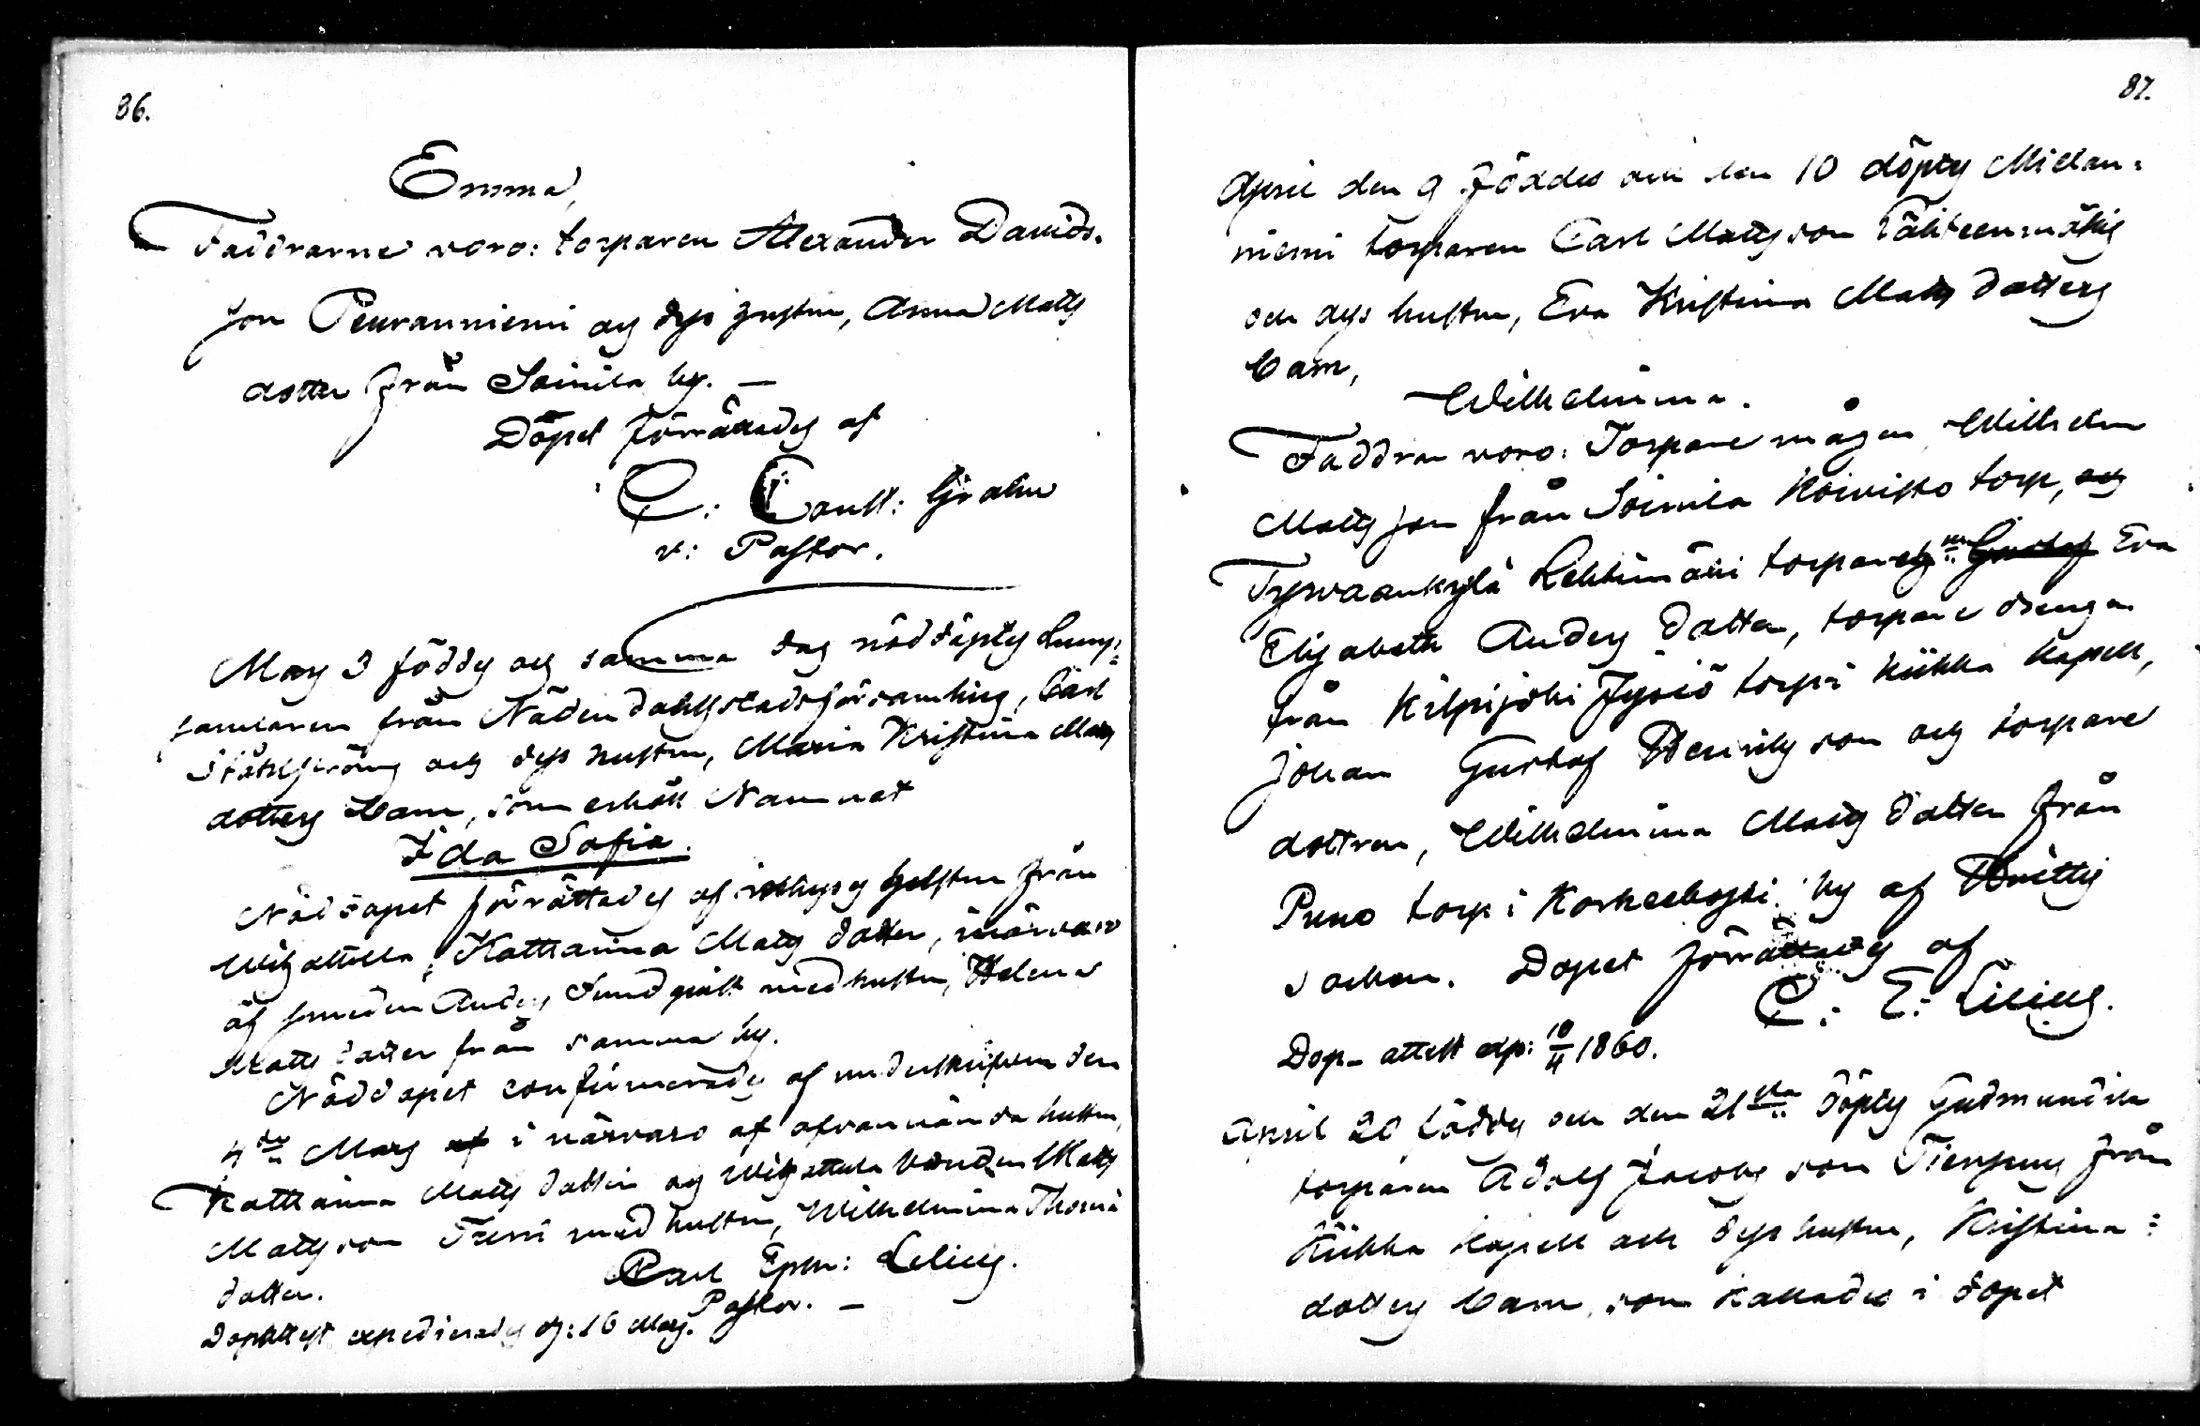 86.
Emma,
Faddrarne voro: torparen Alexander Davids-
son Peuranniemi og dess hustru, Anna Mats
dotter från Soinila by. —
Döpet förrättades af
C: Const: Grahn
v: Pastor.
May 3 födds och samma dag nöddöpts Lump-
samlaren från Nådendahlsstadsförsamling, Carl
och dess hustru, Maria Kristina Mats
dotters barn, som erhöll Namnet
Ida Sofia.
Nöddopet förrättades af hustru från
Katharina Mats dotter, i närvaro
af smeden Anders Sundqvist med hustru, Helena
Matts dotter från samma by.
Nöddopet confirmerades af underskrifven den
4de May af i närvaro af ofvannämda hustru,
Katharina Mats dotter og bonden Mats
Matsson med hustru, Wilhelmina Thomæ
dotter.
Carl Ephr: Lilius.
Pastor. —
Dopattest expedierades d: 16 May.
87.
April den 9 föddes och den 10 döpts
niemi torparen Carl Mattsson Tähteenmäkis
och dess hustru, Eva Kristina Matts dotters
barn,
Wilhelmina.
Faddrar voro: Torpare mågen Wilhelm
Matsson från Soinila Koivisto torp, og
Tyrvaankylä Lehtimäki torpares Gustaf Eva
Elisabeth Anders dotter, torpare drengen
från Kilpijoki Jysiö torp i Kiikka kapell,
Johan Gustaf Henriksson och torpare
dottren, Wilhelmina Matts dotter från
Puno torp i Korkeekoski by af Huittis
socken. Dopet förrättades af
C: E: Lilius.
Dop- attest exp: 10/11 1860.
April 20 födds och den 21sta döpts Gudmundila
torparen Adolf Jacobs son från
Kiikka kapell och dess hustru, Kristina
dotters barn, som kallades i dopet